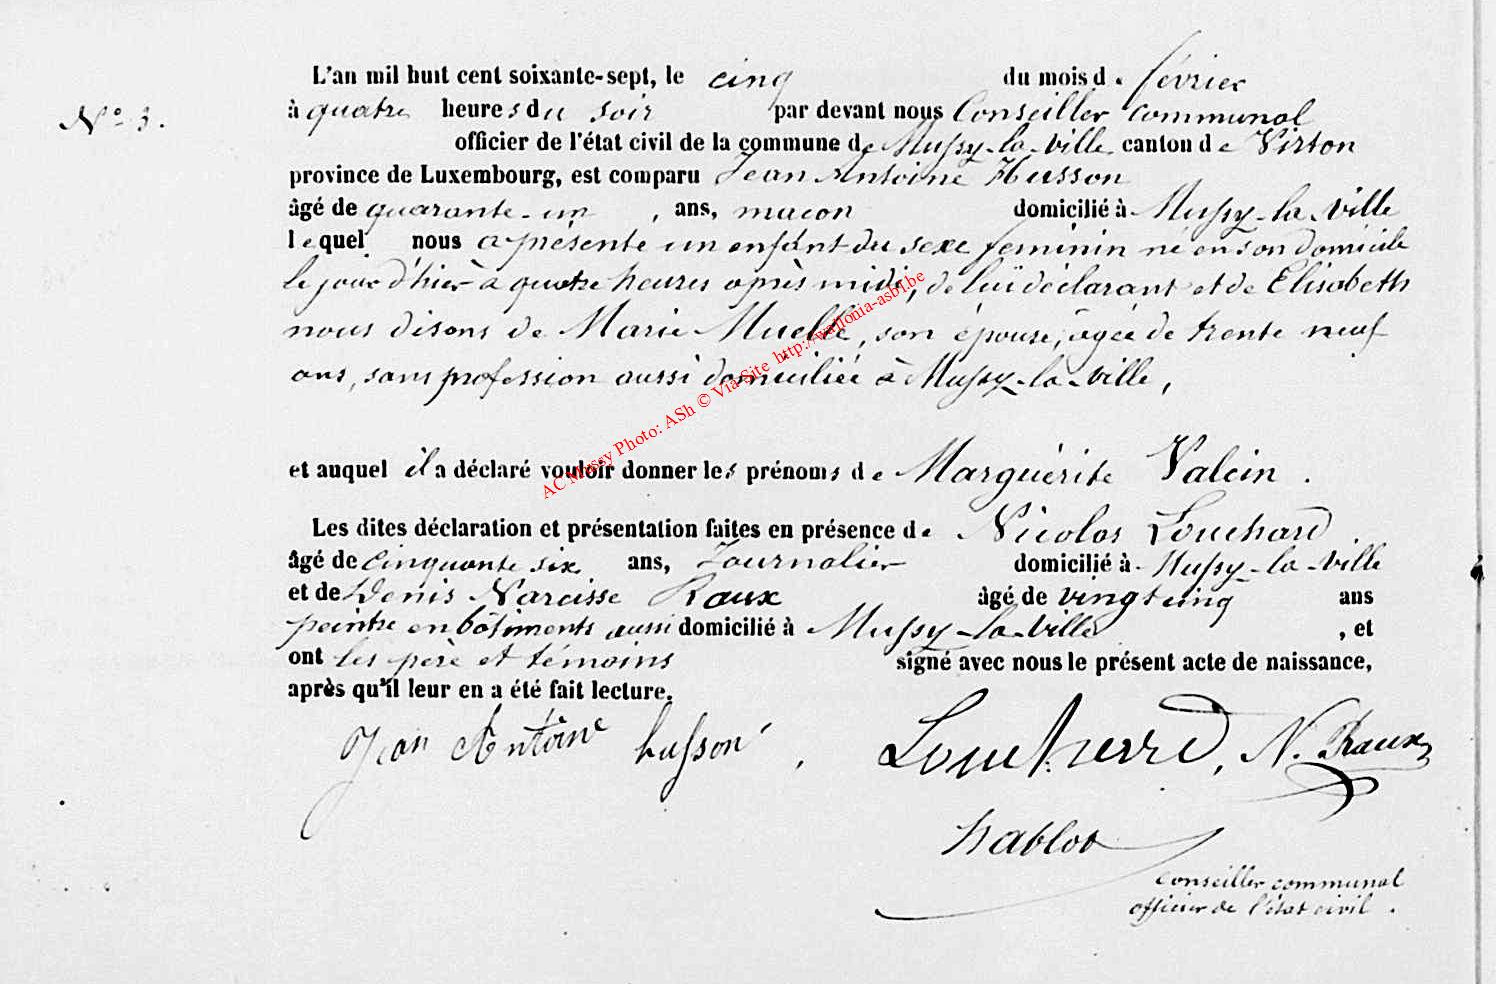 N° 3.
L'an mil huit cent soixante-sept, le cinq du mois de février
à quatre heures du soir par devant nous Conseiller communal
officier de l'état civil de la commune de Mussy-la-ville canton de Virton
province de Luxembourg, est comparu Jean Antoine Husson
âgé de quarante-un, ans, macon domicilié à Mussy-la-ville
lequel nous a présenté un enfant du sexe féminin né en son domicile
le jour d'hier à quatre heures après midi, de lui déclarant et de Elisabeth
nous disons de Marie Muelle, son épouse, âgée de trente neuf
ans, sans profession aussi domiciliée à Mussy-la-ville,
et auquel il a déclaré vouloir donner les prénoms de Marguérite Valein.
Les dites déclaration et présentation faites en présence de Nicolas Louchard
âgé de cinquante six ans, Journalier domicilié à Mussy-la-ville
et de Denis Narcisse Raux âgé de vingt cinq ans
peintre en bâtiments aussi domicilié à Mussy-la-ville, et
ont les père et témoins signé avec nous le présent acte de naissance,
après qu'il leur en a été fait lecture.
Jean Antoine husson, Loucherd, N. Raux
hablot
conseiller communal
officier de l'état civil.
AC Mussy Photo: ASh © Via-Site http://wallonia-asbl.be